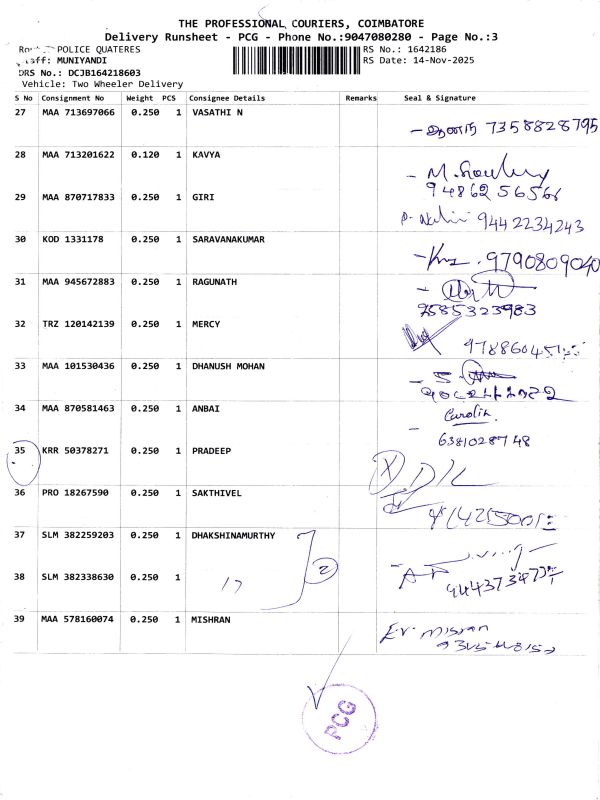 THE PROFESSIONAL COURIERS, COIMBATORE
Delivery Runsheet - PCG - Phone No.:9047080280 - Page No.:3
POLICE QUATERES RS No.: 1642186
MUNIYANDI RS Date: 14-Nov-2025
DRS No.: DCJB164218603
Vehicle: Two Wheeler Delivery
S No Consignment No Weight PCS Consignee Details Remarks Seal & Signature
27 MAA 713697066 0.250 1 VASATHI N
7358828795
28 MAA 713201622 0.120 1 KAVYA
9486256566
29 MAA 870717833 0.250 1 GIRI
9442234243
30 KOD 1331178 0.250 1 SARAVANAKUMAR
9790809040
31 MAA 945672883 0.250 1 RAGUNATH
9585323983
32 TRZ 120142139 0.250 1 MERCY
33 MAA 101530436 0.250 1 DHANUSH MOHAN
34 MAA 870581463 0.250 1 ANBAI
Carolin
6381028748
35 KRR 50378271 0.250 1 PRADEEP
D/L
36 PRO 18267590 0.250 1 SAKTHIVEL
37 SLM 382259203 0.250 1 DHAKSHINAMURTHY
2
38 SLM 382338630 0.250 1
39 MAA 578160074 0.250 1 MISHRAN
Er. Misran
PCG